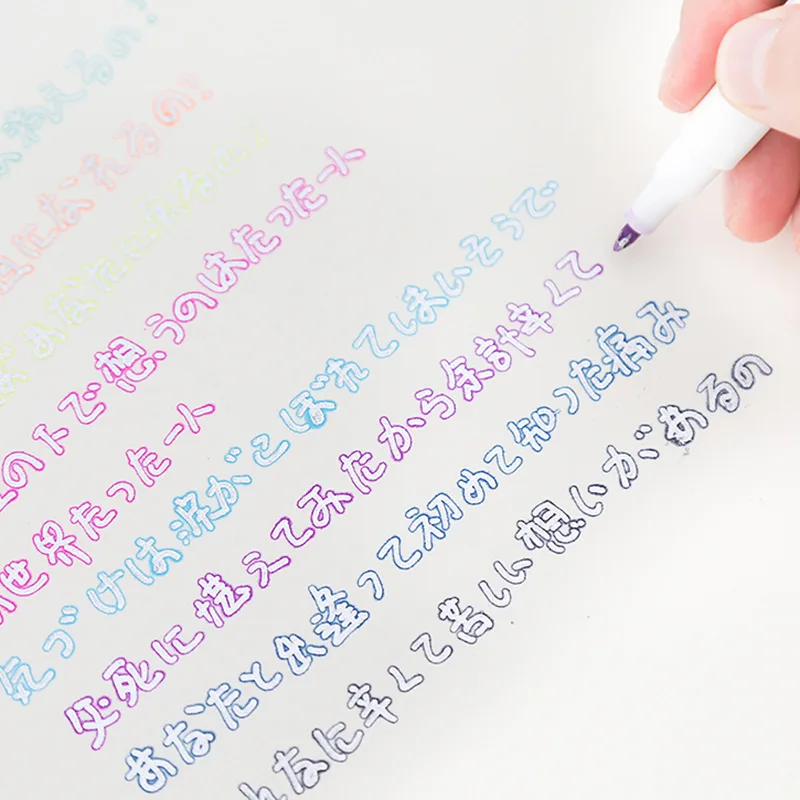 えるの?
になれるの?
あなたになれるの?
の下で想うのはたった一人
世界たった一人
気づけば涙がこぼれてしまいそうで
必死に堪えてみたから余計辛くて
あなたと出逢って初めて知った痛み
んなに辛くて苦しい想いがあるの